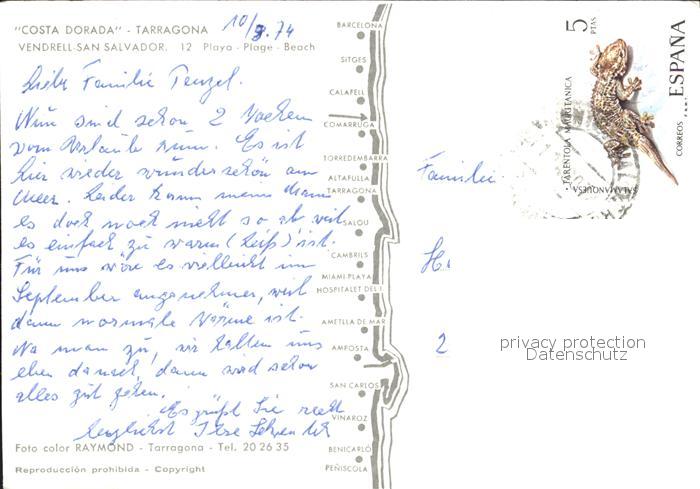 "COSTA DORADA" - TARRAGONA
VENDRELL-SAN SALVADOR. 12 Playa - Plage - Beach
10/8.74
Liebe Familie Tenzel.
Nun sind schon 2 Wochen
vom Urlaub rum. Es ist
hier wieder wunderschön am
Meer. Leider kann mein Mann
es doch noch nicht so ab weil
es einfach zu warm (heiß) ist.
Für uns wäre es vielleicht im
September angenehmer, weil
dann normale Wärme ist.
Na man zu, wir halten uns
eben danach, dann wird schon
alles gut gehen.
Es grüßt Sie recht
herzlichst Ilse
Foto color RAYMOND - Tarragona - Tel. 20 26 35
Reproducción prohibida - Copyright
BARCELONA
SITGES
CALAFELL
COMARRUGA
TORREDEMBARRA
ALTAFULLA
TARRAGONA
SALOU
CAMBRILS
MIAMI-PLAYA
HOSPITALET DEL I.
AMETLLA DE MAR
AMPOSTA
SAN CARLOS
VINAROZ
BENICARLÓ
PEÑISCOLA
5 PTAS
TARENTOLA MAURITANICA
SALAMANQUESA
CORREOS
ESPAÑA
Familie
H.
2
privacy protection
Datenschutz